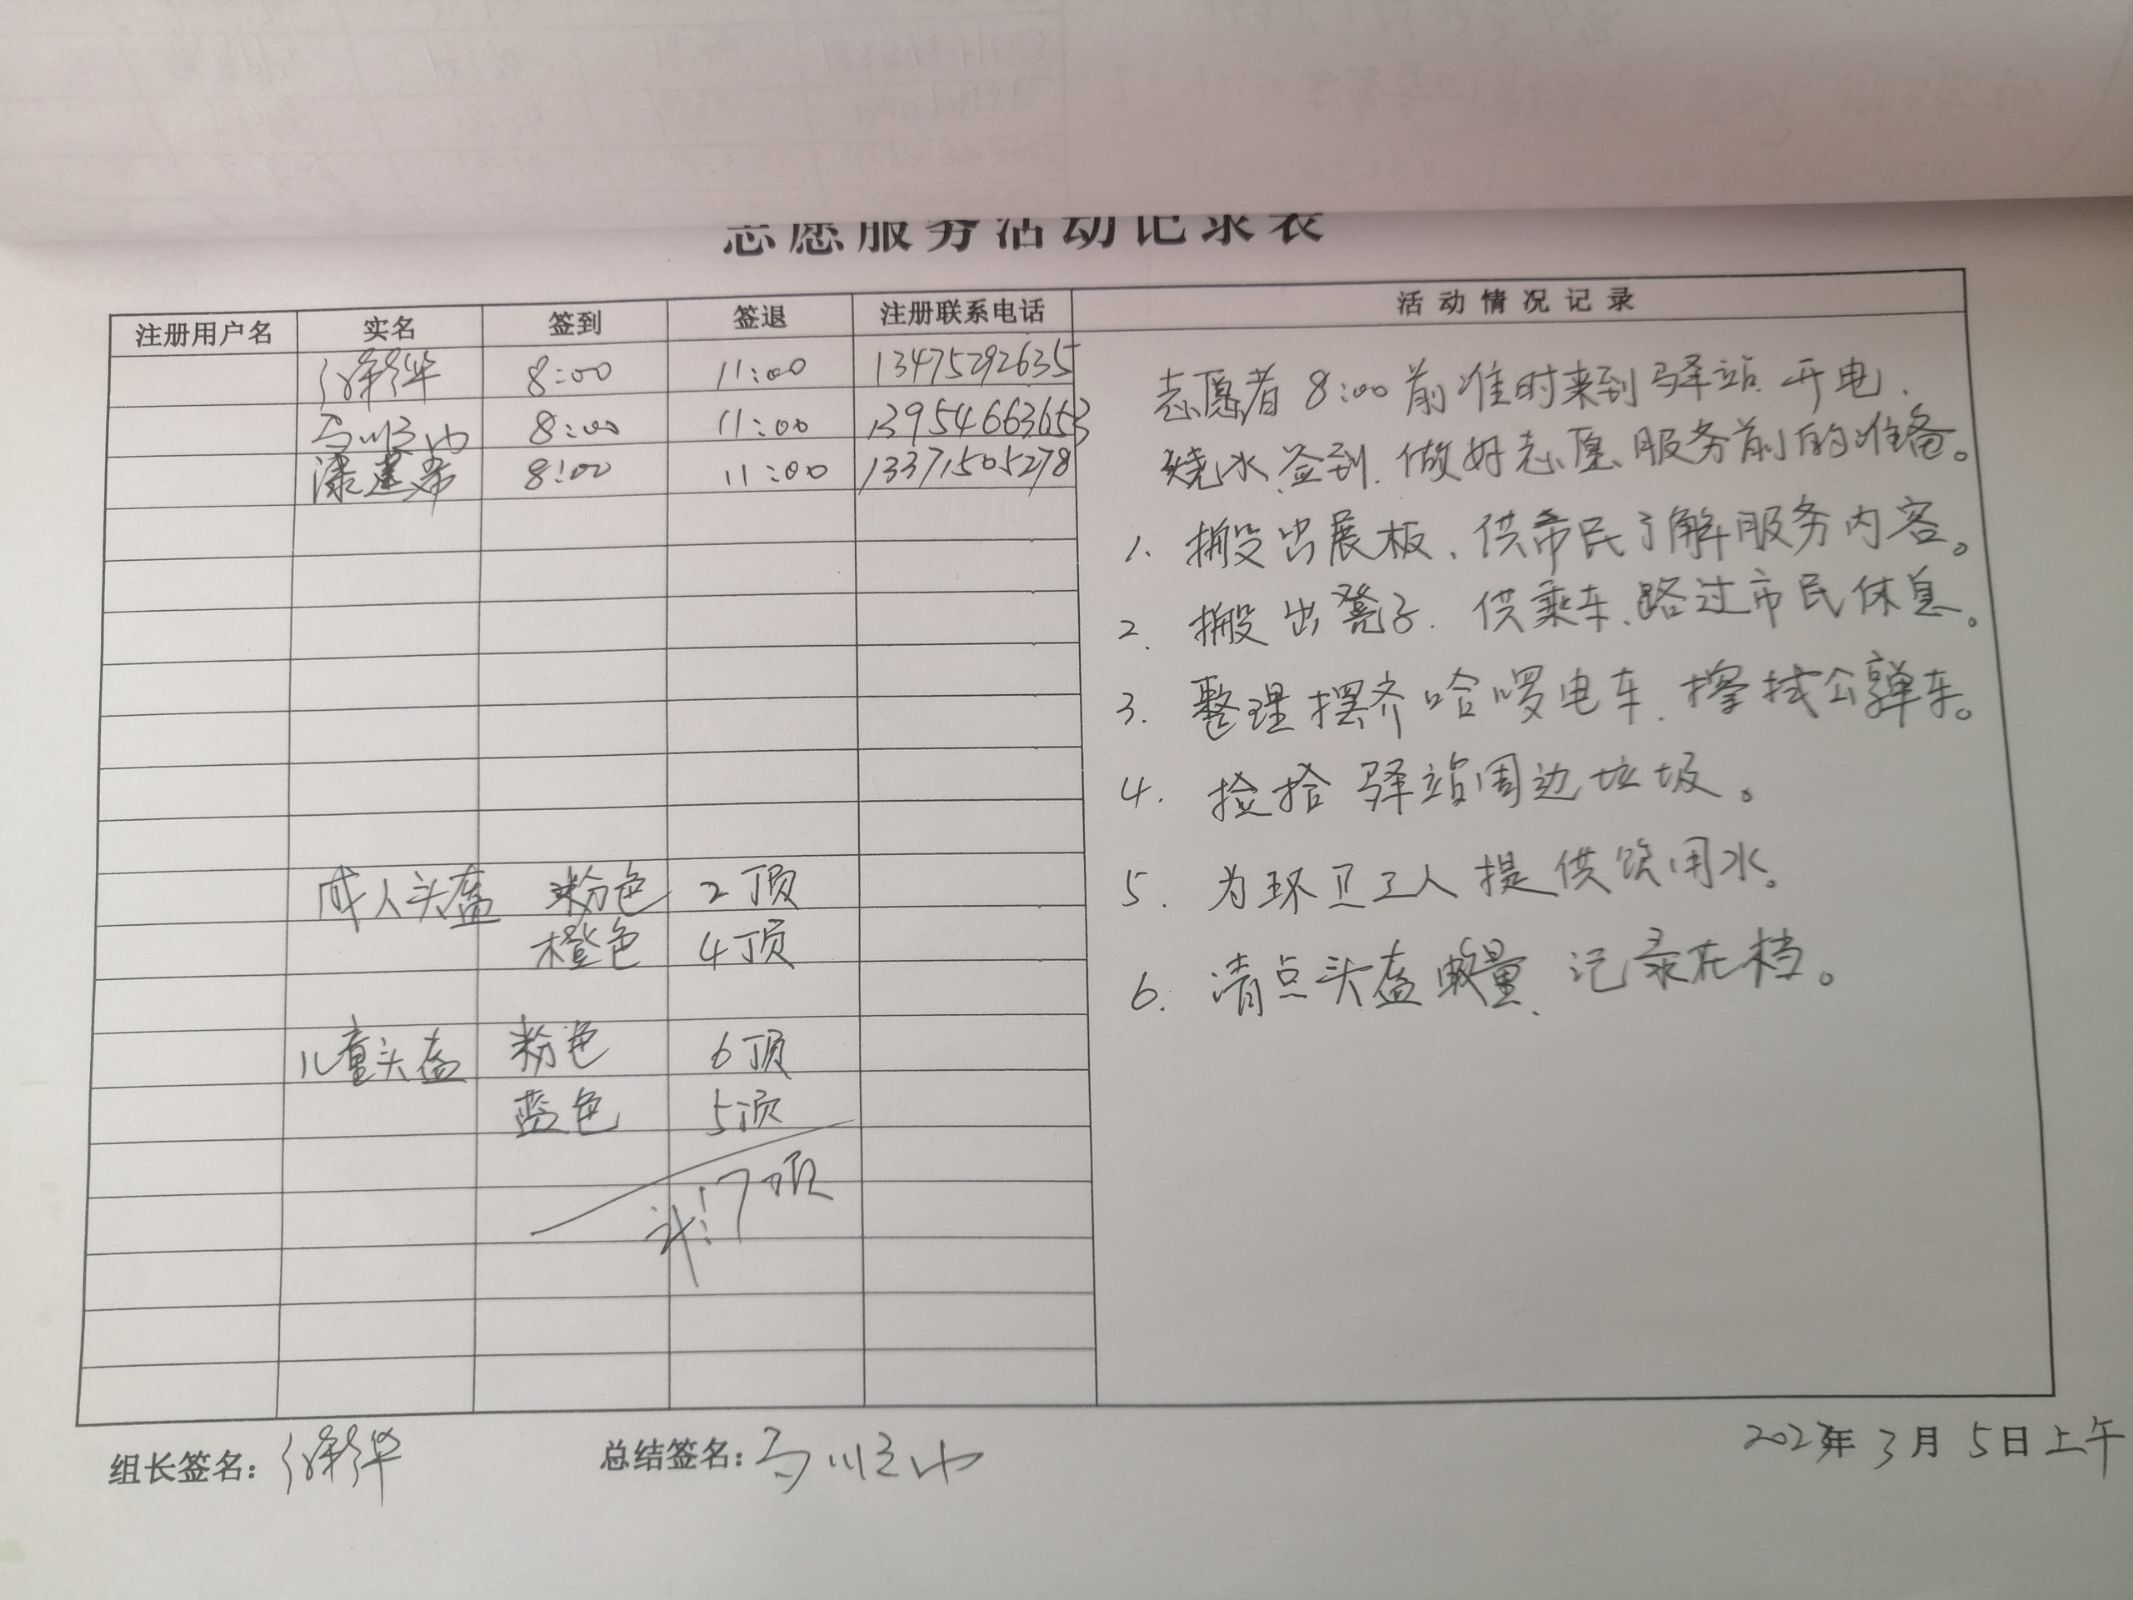 志愿服务活动记录表
注册用户名 实名 签到 签退 注册联系电话 活动情况记录
8:00 11:00 13475292635
8:00 11:00 13954663653
8:00 11:00 13371505278
志愿者8:00前准时来到驿站.开电.
烧水.签到.做好志愿服务前的准备。
1. 搬出展板、供市民了解服务内容。
2. 搬出凳子.供乘车、路过市民休息。
3. 整理摆齐哈啰电车.擦拭公单车。
4. 捡拾驿站周边垃圾。
5. 为环卫工人提供饮用水。
6. 清点头盔数量、记录在档。
成人头盔 粉色 2顶
橙色 4顶
儿童头盔 粉色 6顶
蓝色 5顶
计:17顶
组长签名: 总结签名: 2023年3月5日上午